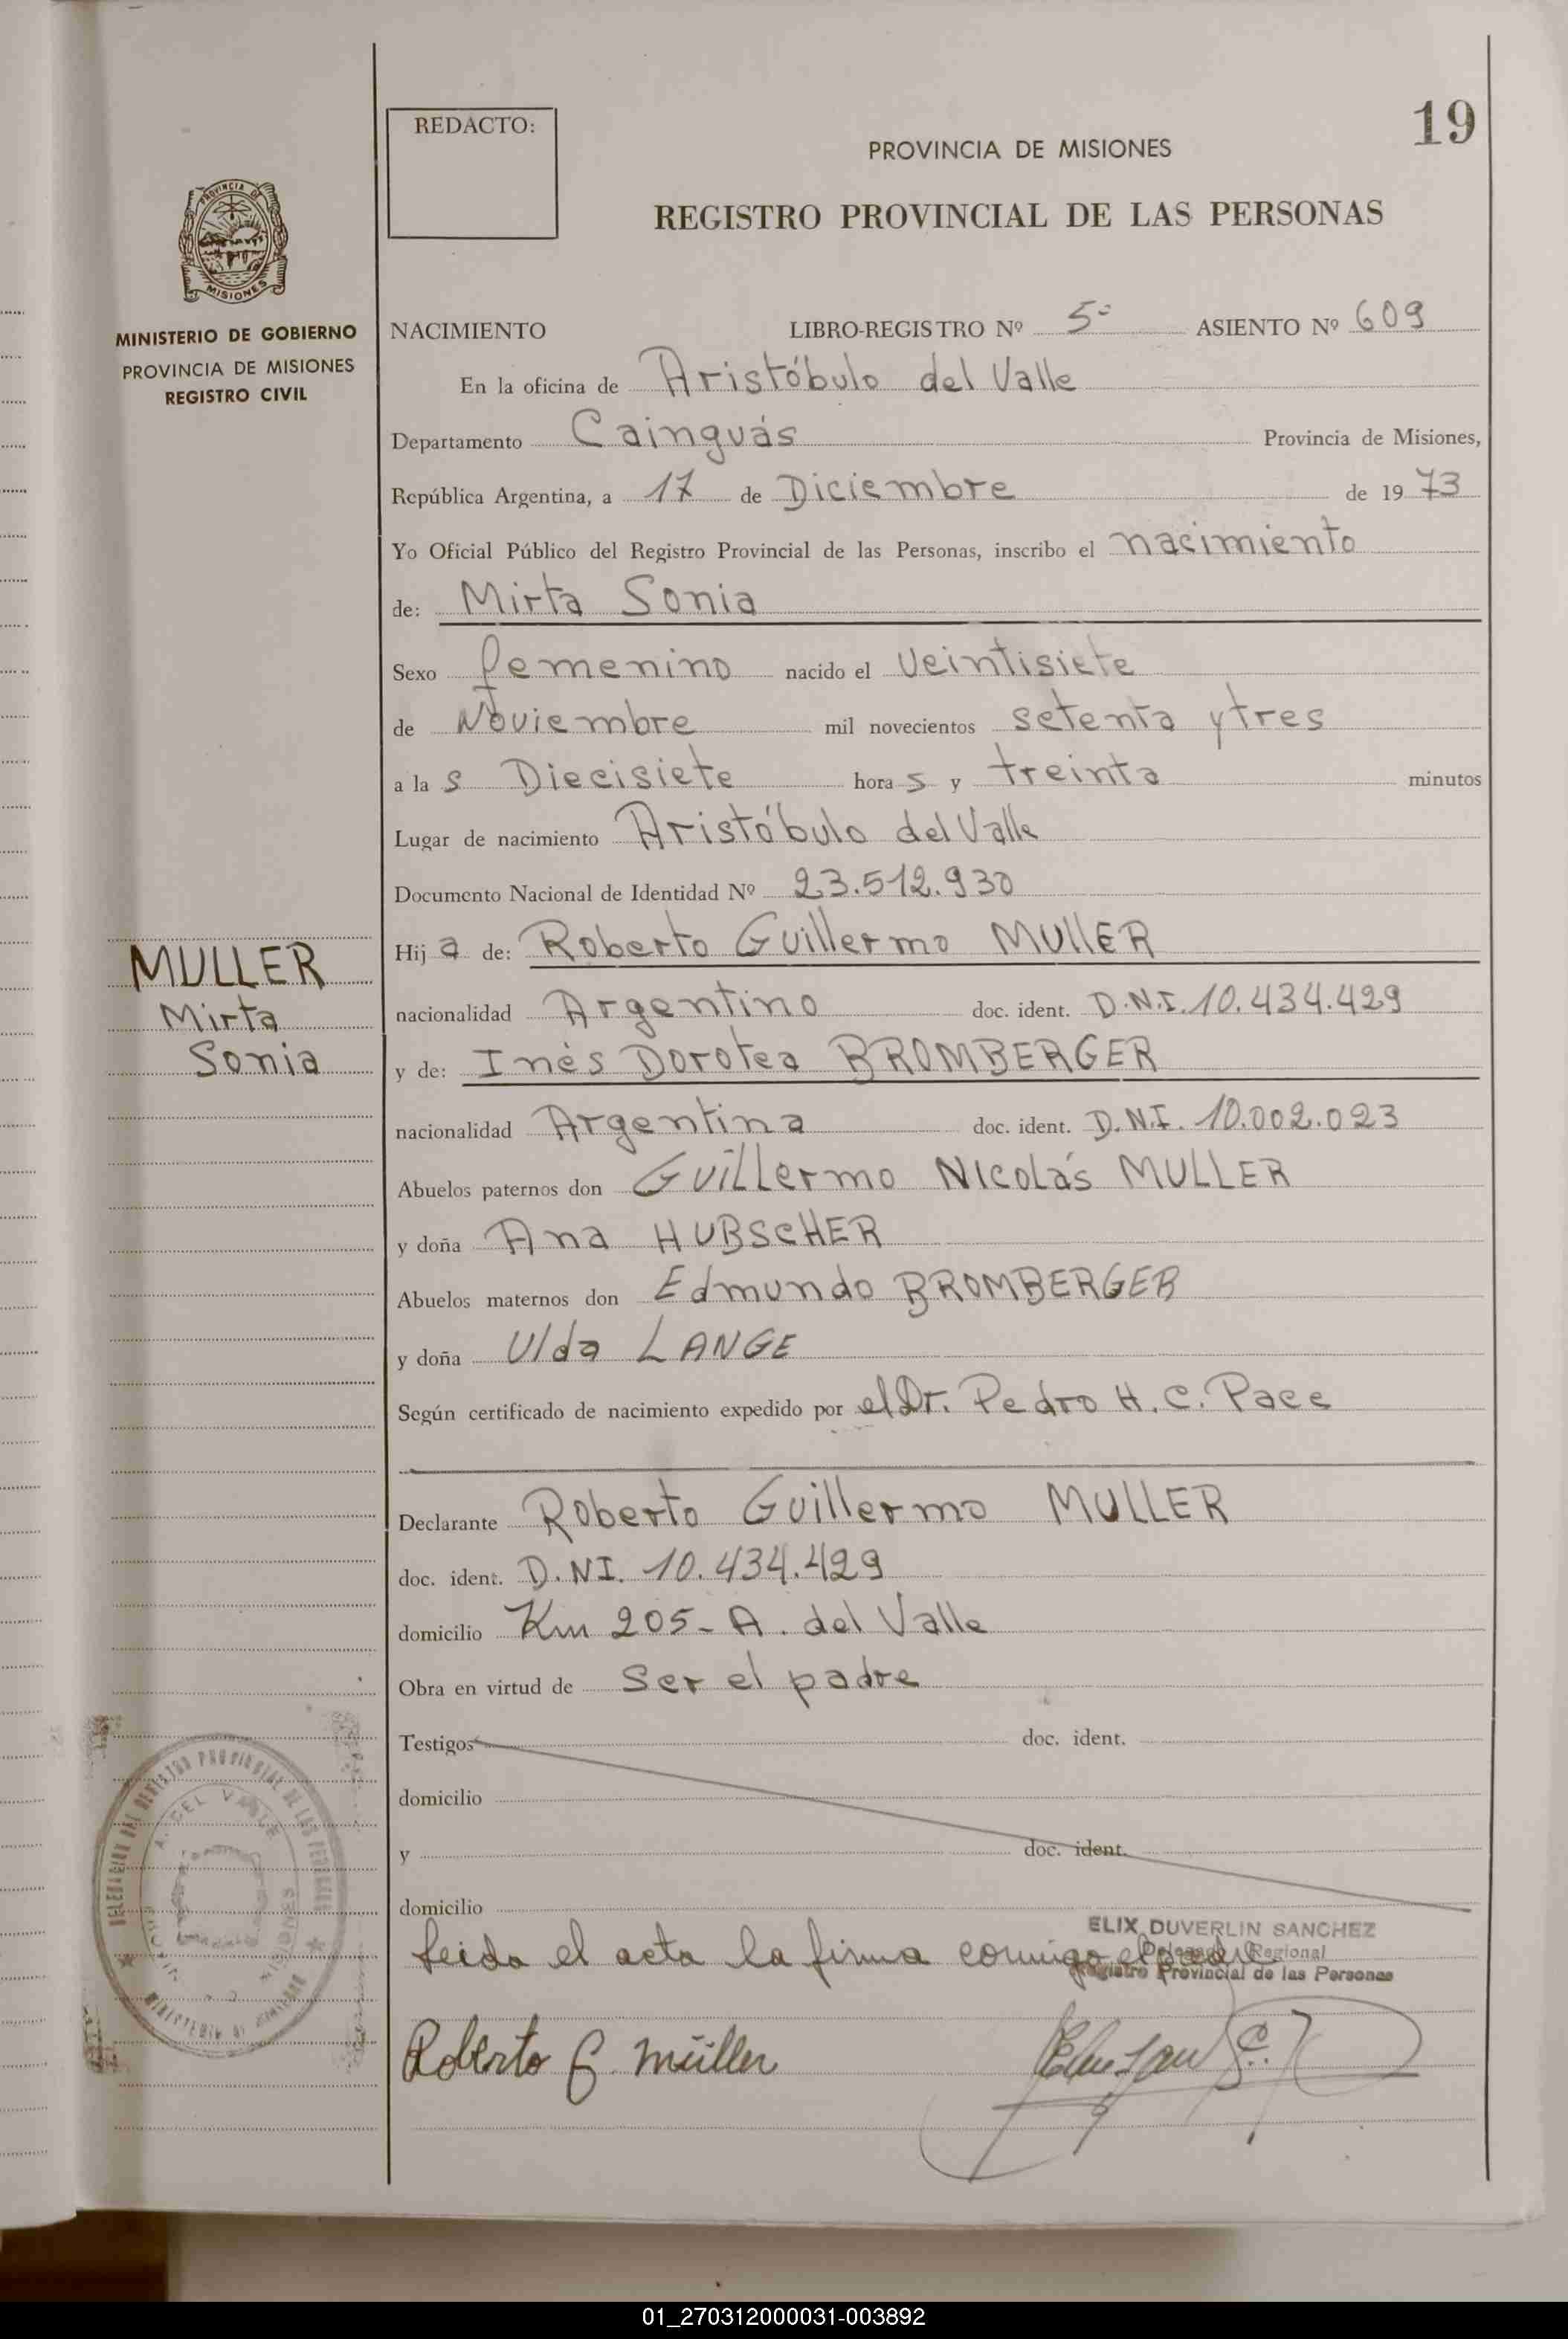 19
REDACTO:
PROVINCIA DE MISIONES
REGISTRO PROVINCIAL DE LAS PERSONAS
PROVINCIA DE
MISIONES
MINISTERIO DE GOBIERNO
PROVINCIA DE MISIONES
REGISTRO CIVIL
NACIMIENTO LIBRO-REGISTRO Nº 5º ASIENTO Nº 609
En la oficina de Aristóbulo del Valle
Departamento Cainguás Provincia de Misiones,
República Argentina, a 17 de Diciembre de 1973
Yo Oficial Público del Registro Provincial de las Personas, inscribo el nacimiento
de: Mirta Sonia
Sexo femenino nacido el veintisiete
de Noviembre mil novecientos setenta y tres
a la s Diecisiete hora s y treinta minutos
Lugar de nacimiento Aristóbulo del Valle
Documento Nacional de Identidad Nº 23.512.930
MULLER
Mirta
Sonia
Hij a de: Roberto Guillermo MULLER
nacionalidad Argentino doc. ident. D.N.I. 10.434.429
y de: Inés Dorotea BROMBERGER
nacionalidad Argentina doc. ident. D.N.I. 10.002.023
Abuelos paternos don Guillermo Nicolás MULLER
y doña Ana HUBSCHER
Abuelos maternos don Edmundo BROMBERGER
y doña Ulda LANGE
Según certificado de nacimiento expedido por el Dr. Pedro H. C. Pace
Declarante Roberto Guillermo MULLER
doc. ident. D.NI. 10.434.429
domicilio Km 205- A. del Valle
Obra en virtud de Ser el padre
Testigos doc. ident.
domicilio
y doc. ident.
domicilio
DELEGACION DEL REGISTRO PROVINCIAL DE LAS PERSONAS
A. DEL VALLE
MISIONES
MINISTERIO DE GOBIERNO
ELIX DUVERLIN SANCHEZ
Delegado Regional
Registro Provincial de las Personas
Leida el acta la firma conmigo el padre
Roberto G. Müller
01_270312000031-003892